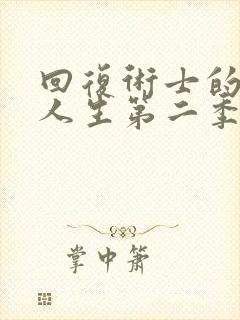 回復術士的
人生第二季
掌中箫